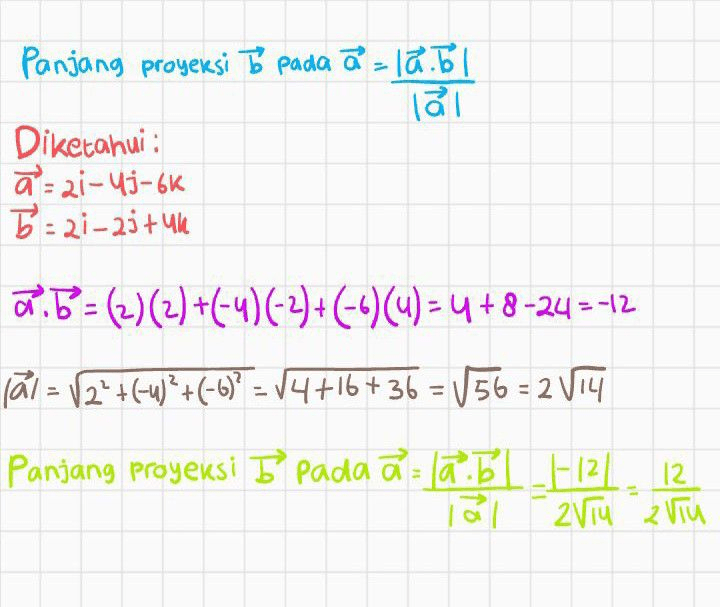 Panjang proyeksi b⃗ pada a⃗ = |a⃗.b⃗| / |a⃗|
Diketahui :
a⃗ = 2i-4j-6k
b⃗ = 2i-2j+4k
a⃗.b⃗ = (2)(2)+(-4)(-2)+(-6)(4) = 4+8-24 = -12
|a⃗| = √(2²+(-4)²+(-6)²) = √(4+16+36) = √56 = 2√14
Panjang proyeksi b⃗ pada a⃗ = |a⃗.b⃗| / |a⃗| = |-12| / 2√14 = 12 / 2√14